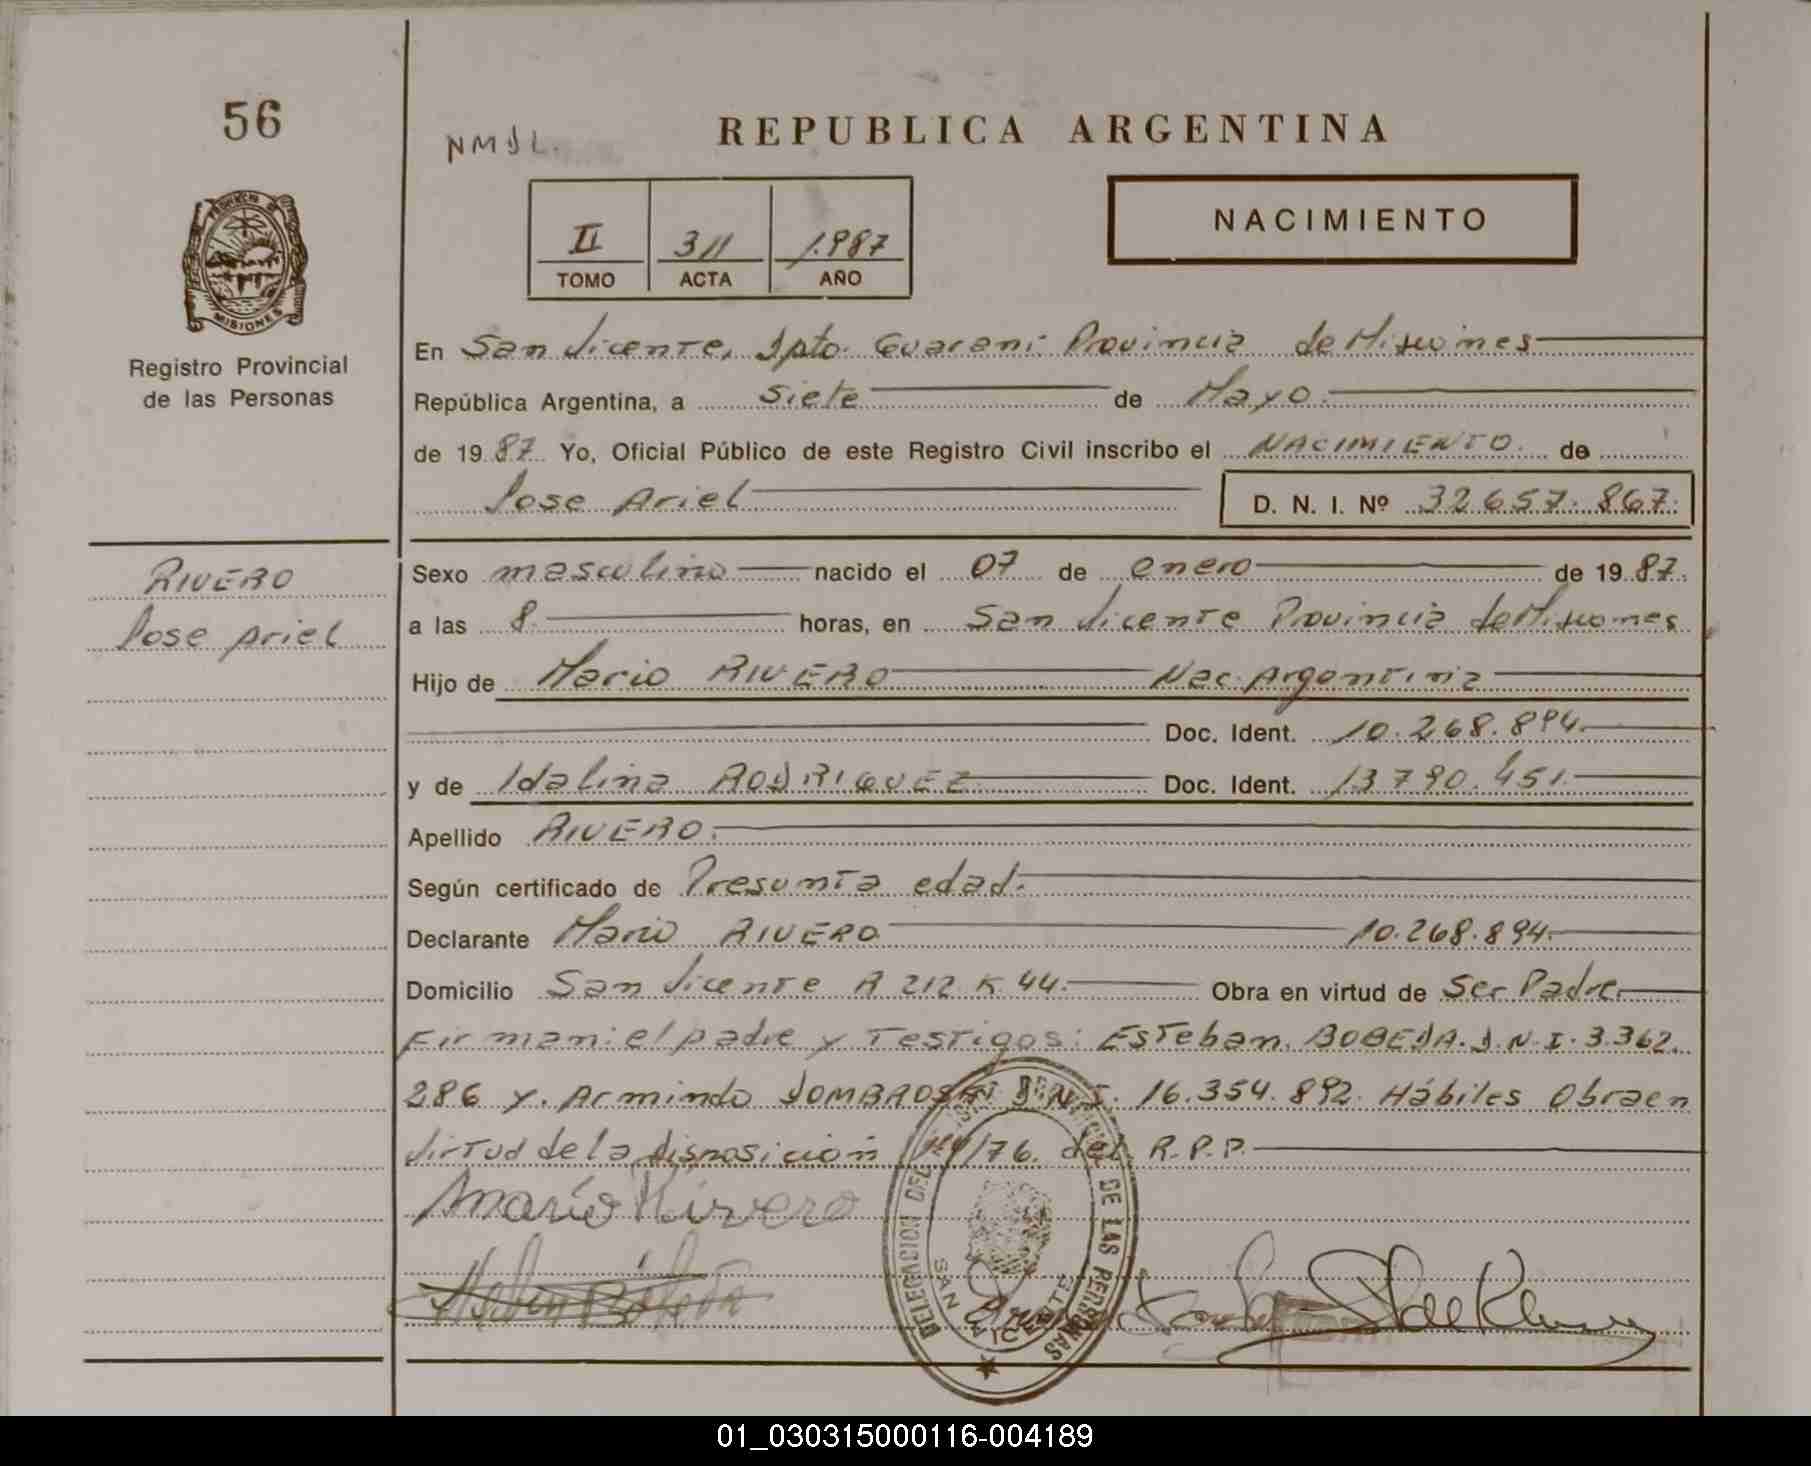 56
NMJL.
REPUBLICA ARGENTINA
PROVINCIA DE
MISIONES
Registro Provincial
de las Personas
II 311 1.987
TOMO ACTA AÑO
NACIMIENTO
En San Vicente, Dpto. Guarani Provincia de Misiones
República Argentina, a Siete de Mayo.
de 19 87 Yo, Oficial Público de este Registro Civil inscribo el NACIMIENTO. de
Jose Ariel D. N. I. Nº 32.657.867.
RIVERO
Jose Ariel
Sexo masculino nacido el 07 de enero de 19 87.
a las 8. horas, en San Vicente Provincia de Misiones
Hijo de Mario RIVERO Nac. Argentina
Doc. Ident. 10.268.894.
y de Idalina RODRIGUEZ Doc. Ident. 13.790.451.
Apellido RIVERO.
Según certificado de Presunta edad.
Declarante Mario RIVERO 10.268.894.
Domicilio San Vicente R 212 K 44. Obra en virtud de Ser Padre
Firman: el padre y Testigos: Esteban BOBEDA. D.N.I. 3.362.
286 y. Armindo DOMBROSKI D.N.I. 16.354.892. Hábiles Obra en
Virtud de la disposición /76. del R.P.P.
Mario Rivero
DELEGACION DEL REGISTRO PROVINCIAL DE LAS PERSONAS
SAN VICENTE
01_030315000116-004189